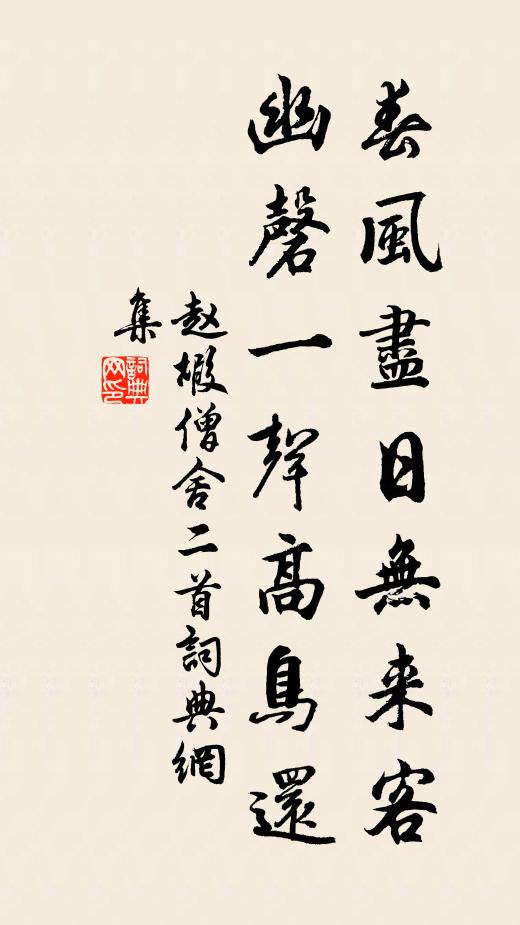 春風盡日無来客
幽磬一聲高鳥還
赵嘏僧舍二首詞典網
集
詞典網印